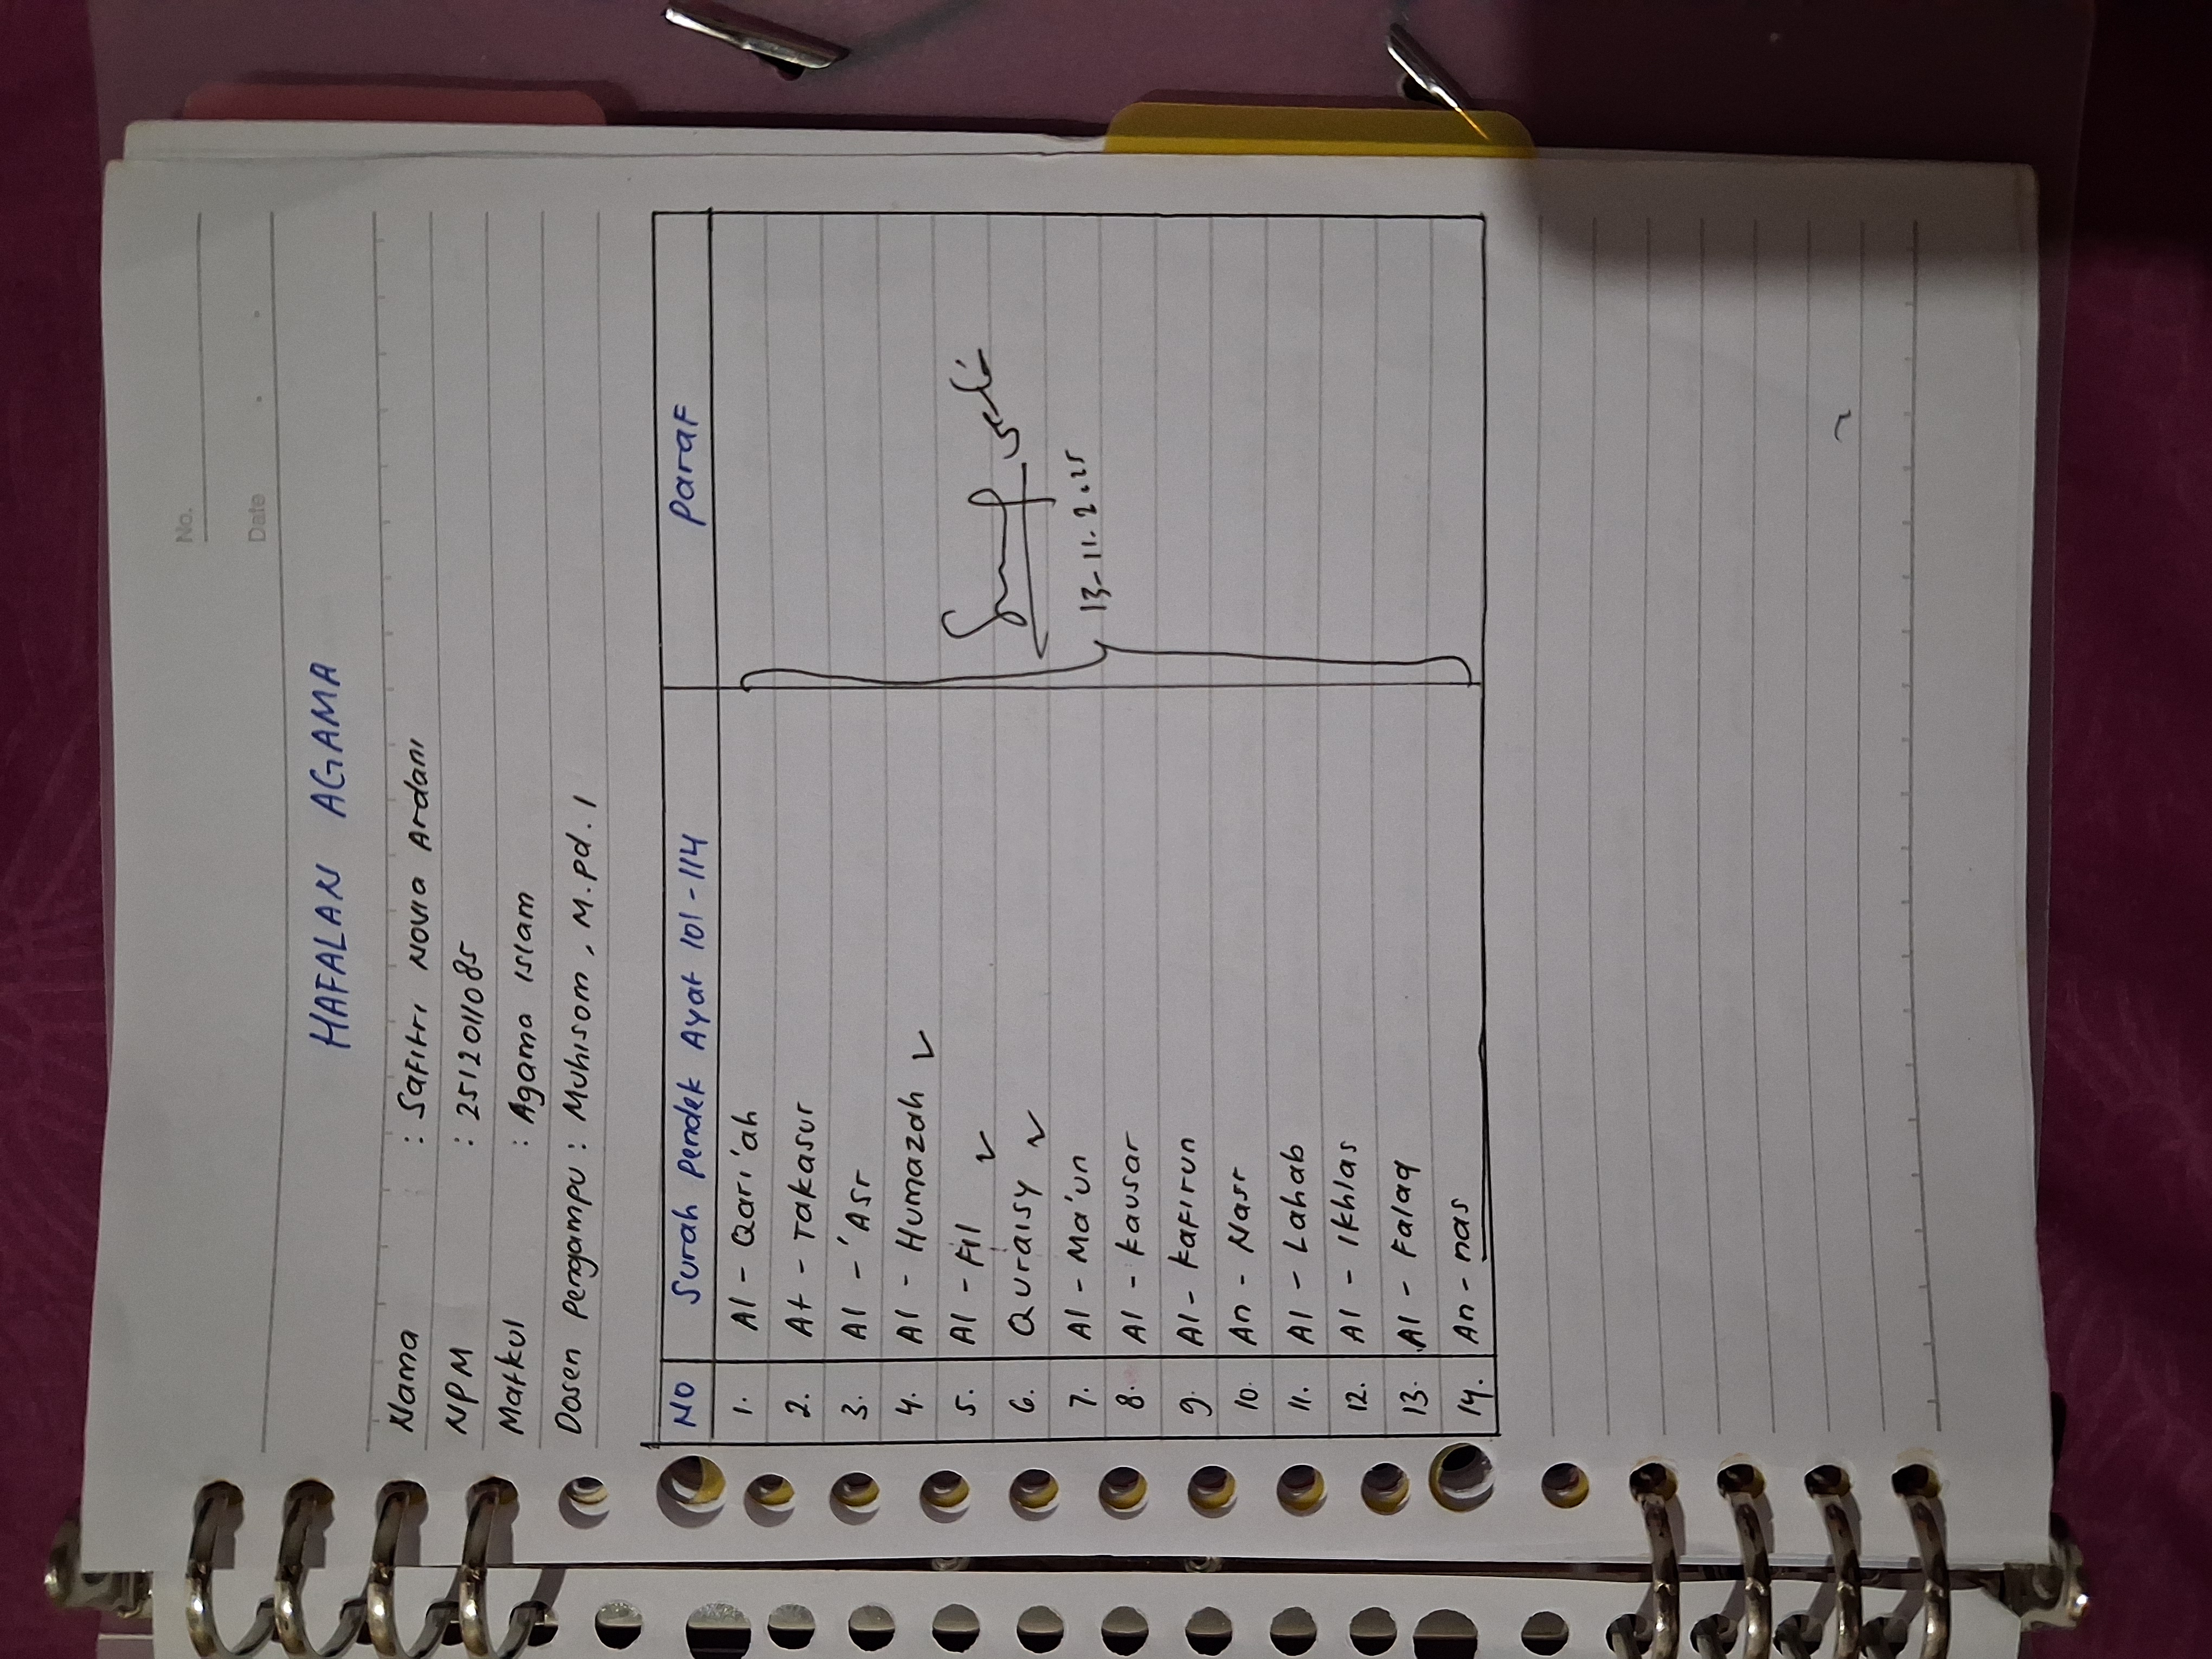 No.
Date
HAFALAN AGAMA
Nama : Safitri Novia Ardani
NPM : 2512011085
Matkul : Agama Islam
Dosen Pengampu : Muhisom, M.Pd.I
NO Surah Pendek Ayat 101-114 Paraf
1. Al - Qari'ah
2. At - Takasur
3. Al - 'Asr
4. Al - Humazah ✓
5. Al - Fil ✓
6. Quraisy ✓
7. Al - Ma'un
8. Al - Kausar
9. Al - Kafirun
10. An - Nasr
11. Al - Lahab
12. Al - Ikhlas
13. Al - Falaq
14. An - nas
13-11.2025